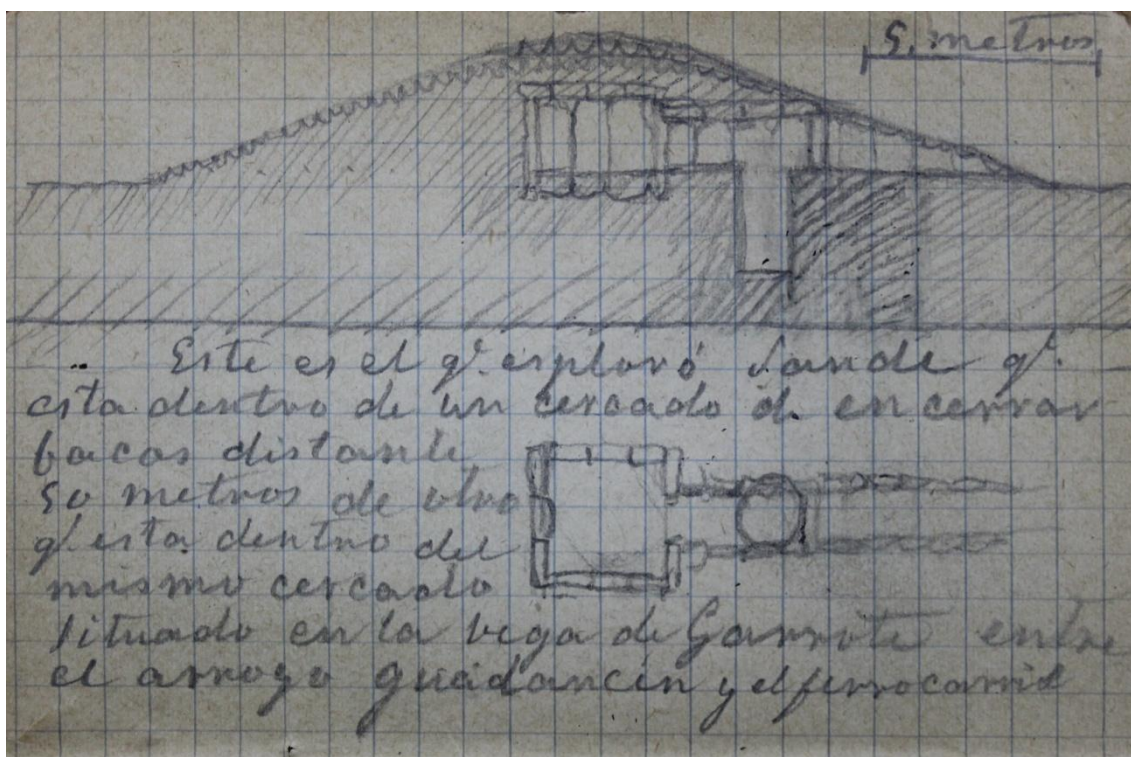 5. metros
Este es el q.e esploró Sande q.e
esta dentro de un cercado de encerrar
bacas distante
50 metros de otro
q.e esta dentro del
mismo cercado
situado en la vega de Garrote entre
el arroyo guadancin y el ferrocarril